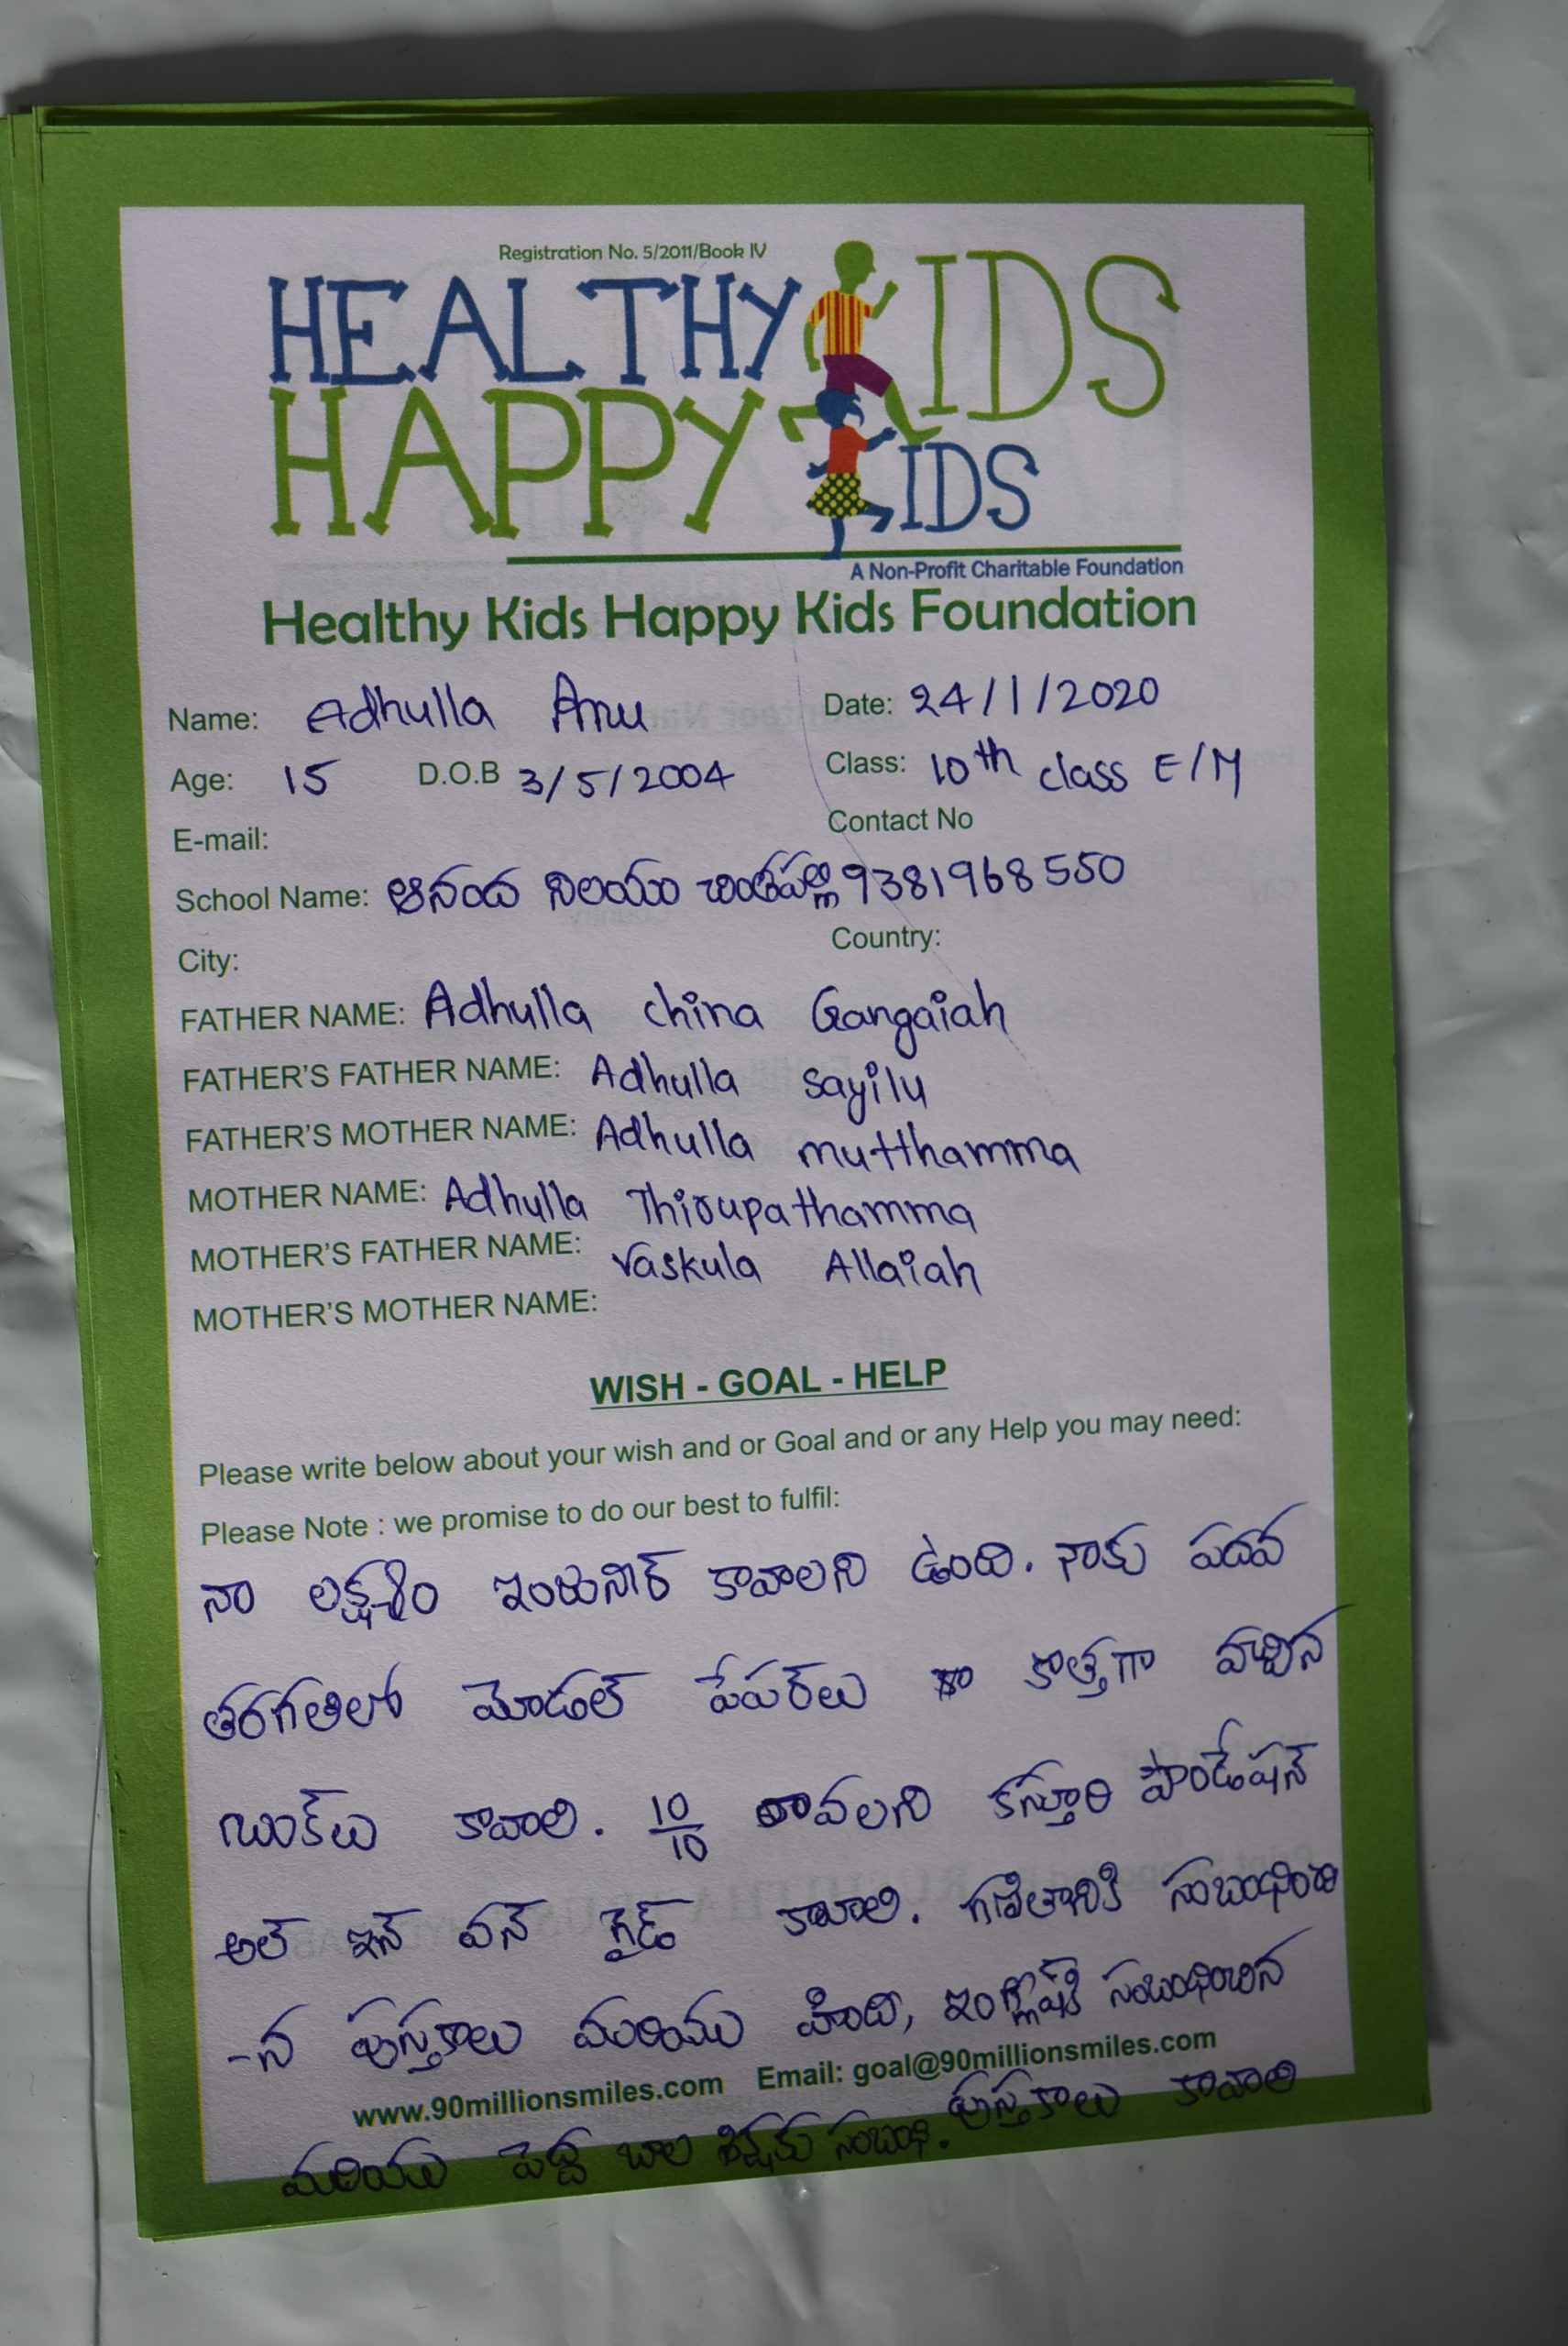 Registration No. 5/2011/Book IV
HEALTHY KIDS
HAPPY KIDS
A Non-Profit Charitable Foundation
Healthy Kids Happy Kids Foundation
Name: Adhulla Anu Date: 24/1/2020
Age: 15 D.O.B 3/5/2004 Class: 10th class E/M
E-mail: Contact No
School Name: ఆనంద నిలయం చింతపల్లి 9381968550
City: Country:
FATHER NAME: Adhulla china Gangaiah
FATHER'S FATHER NAME: Adhulla sayilu
FATHER'S MOTHER NAME: Adhulla mutthamma
MOTHER NAME: Adhulla Thirupathamma
MOTHER'S FATHER NAME: Vaskula Allaiah
MOTHER'S MOTHER NAME:
WISH - GOAL - HELP
Please write below about your wish and or Goal and or any Help you may need:
Please Note : we promise to do our best to fulfil:
నా లక్ష్యం ఇంజునీర్ కావాలని ఉంది. నాకు పదవ
తరగతిలో మోడల్ పేపర్లు కొత్తగా వచ్చిన
బుక్లు కావాలి. 10/10 రావలని కస్తూరి ఫౌండేషన్
అల్ ఇన్ వన్ గైడ్ కావాలి. గణితానికి సంబంధించి
-న పుస్తకాలు మరియు హింది, ఇంగ్లీష్‌కి సంబంధించిన
www.90millionsmiles.com Email: goal@90millionsmiles.com
పుస్తకాలు కావాలి
మరియు పెద్ద బాల శిక్షకు సంబంధి.